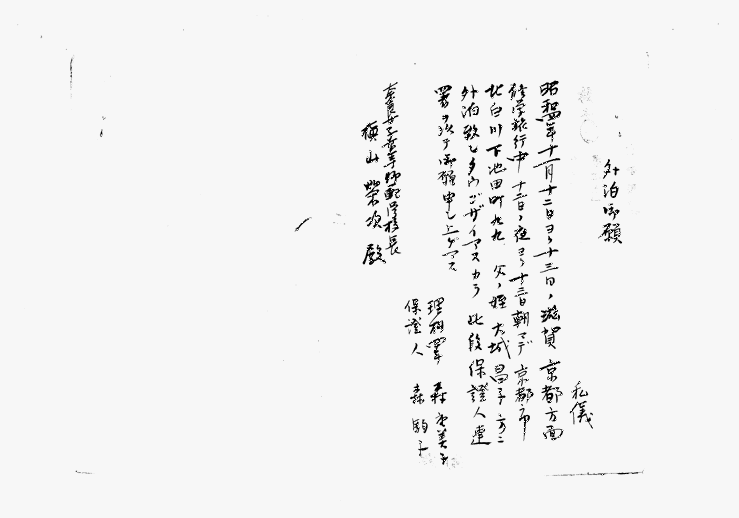 外泊御願
私儀
昭和 年十一月十二日ヨリ十三日、滋賀京都方面
修学旅行中十二日ノ夜ヨリ十三日朝マデ京都市
北白川下池田町九九 父ノ姪 大城昌子方ニ
外泊致シタウゴザイマスカラ 此段保證人連
署ヲ以テ御願申シ上ゲマス
理科 森 美子
保證人 森 駒子
奈良女子高等師範学校長
横山榮次殿